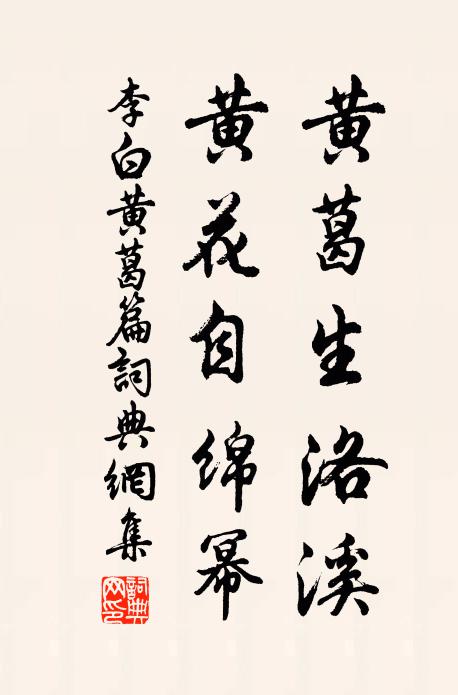 黄葛生洛溪
黄花自绵幂
李白黄葛篇詞典網集
詞典网印